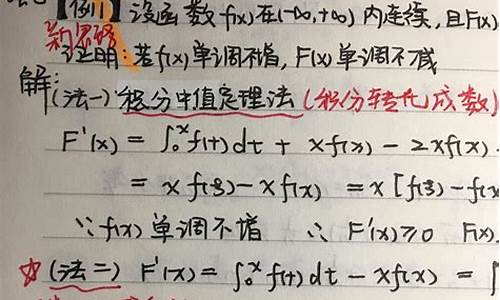 【例1】设函数f(x)在(-∞,+∞)内连续,且F(x)
新思路
证明:若f(x)单调不增,F(x)单调不减
解:(法一)积分中值定理法(积分转化成数)
F'(x) = ∫₀ˣ f(t)dt + xf(x) - 2xf(x)
= xf(ξ) - xf(x) = x[f(ξ) - f(x
∵f(x)单调不增 ∴ F'(x)≥0 F(x)
☆(法二) F'(x) = ∫₀ˣ f(t)dt - xf(x) =